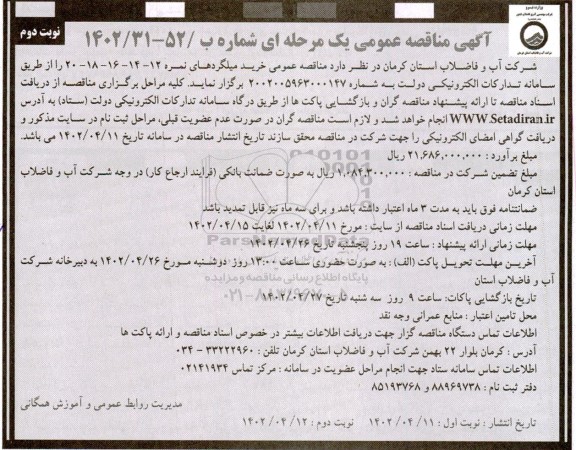 نوبت دوم
آگهی مناقصه عمومی یک مرحله ای شماره ب /۵۲-۱۴۰۲/۳۱
شرکت آب و فاضلاب استان کرمان در نظر دارد مناقصه عمومی خرید میلگردهای نمره ۱۲-۱۴-۱۶-۱۸-۲۰ را از طریق
سامانه تدارکات الکترونیکی دولت به شماره ۲۰۰۲۰۰۵۹۶۳۰۰۰۱۴۷ برگزار نماید. کلیه مراحل برگزاری مناقصه از دریافت
اسناد مناقصه تا ارائه پیشنهاد مناقصه گران و بازگشایی پاکت ها از طریق درگاه سامانه تدارکات الکترونیکی دولت (ستاد) به آدرس
WWW.Setadiran.ir انجام خواهد شد و لازم است مناقصه گران در صورت عدم عضویت قبلی، مراحل ثبت نام در سایت مذکور و
دریافت گواهی امضای الکترونیکی را جهت شرکت در مناقصه محقق سازند تاریخ انتشار مناقصه در سامانه تاریخ ۱۴۰۲/۰۴/۱۱ می باشد.
مبلغ برآورد : ۲۱,۶۸۶,۰۰۰,۰۰۰ ریال
مبلغ تضمین شرکت در مناقصه : ۱,۰۸۴,۳۰۰,۰۰۰ ریال به صورت ضمانت بانکی (فرایند ارجاع کار) در وجه شرکت آب و فاضلاب
استان کرمان
ضمانتنامه فوق باید به مدت ۳ ماه اعتبار داشته باشد و برای سه ماه نیز قابل تمدید باشد
مهلت زمانی دریافت اسناد مناقصه از سایت : مورخ ۱۴۰۲/۰۴/۱۱ لغایت ۱۴۰۲/۰۴/۱۵
مهلت زمانی ارائه پیشنهاد : ساعت ۱۹ روز پنجشنبه تاریخ
آخرین مهلت تحویل پاکت (الف) : به صورت حضوری ساعت ۱۳:۰۰ روز دوشنبه مورخ ۱۴۰۲/۰۴/۲۶ به دبیرخانه شرکت
آب و فاضلاب استان
تاریخ بازگشایی پاکات: ساعت ۹ روز سه شنبه تاریخ ۱۴۰۲/۰۴/۲۷
محل تامین اعتبار : منابع عمرانی وجه نقد
اطلاعات تماس دستگاه مناقصه گزار جهت دریافت اطلاعات بیشتر در خصوص اسناد مناقصه و ارائه پاکت ها
آدرس : کرمان بلوار ۲۲ بهمن شرکت آب و فاضلاب استان کرمان تلفن : ۳۳۲۲۲۹۶۰ - ۰۳۴
اطلاعات تماس سامانه ستاد جهت انجام مراحل عضویت در سامانه : مرکز تماس ۰۲۱۴۱۹۳۴
دفتر ثبت نام : ۸۸۹۶۹۷۳۸ و ۸۵۱۹۳۷۶۸
مدیریت روابط عمومی و آموزش همگانی
تاریخ انتشار : نوبت اول : ۱۴۰۲/۰۴/۱۱ نوبت دوم : ۱۴۰۲/۰۴/۱۲